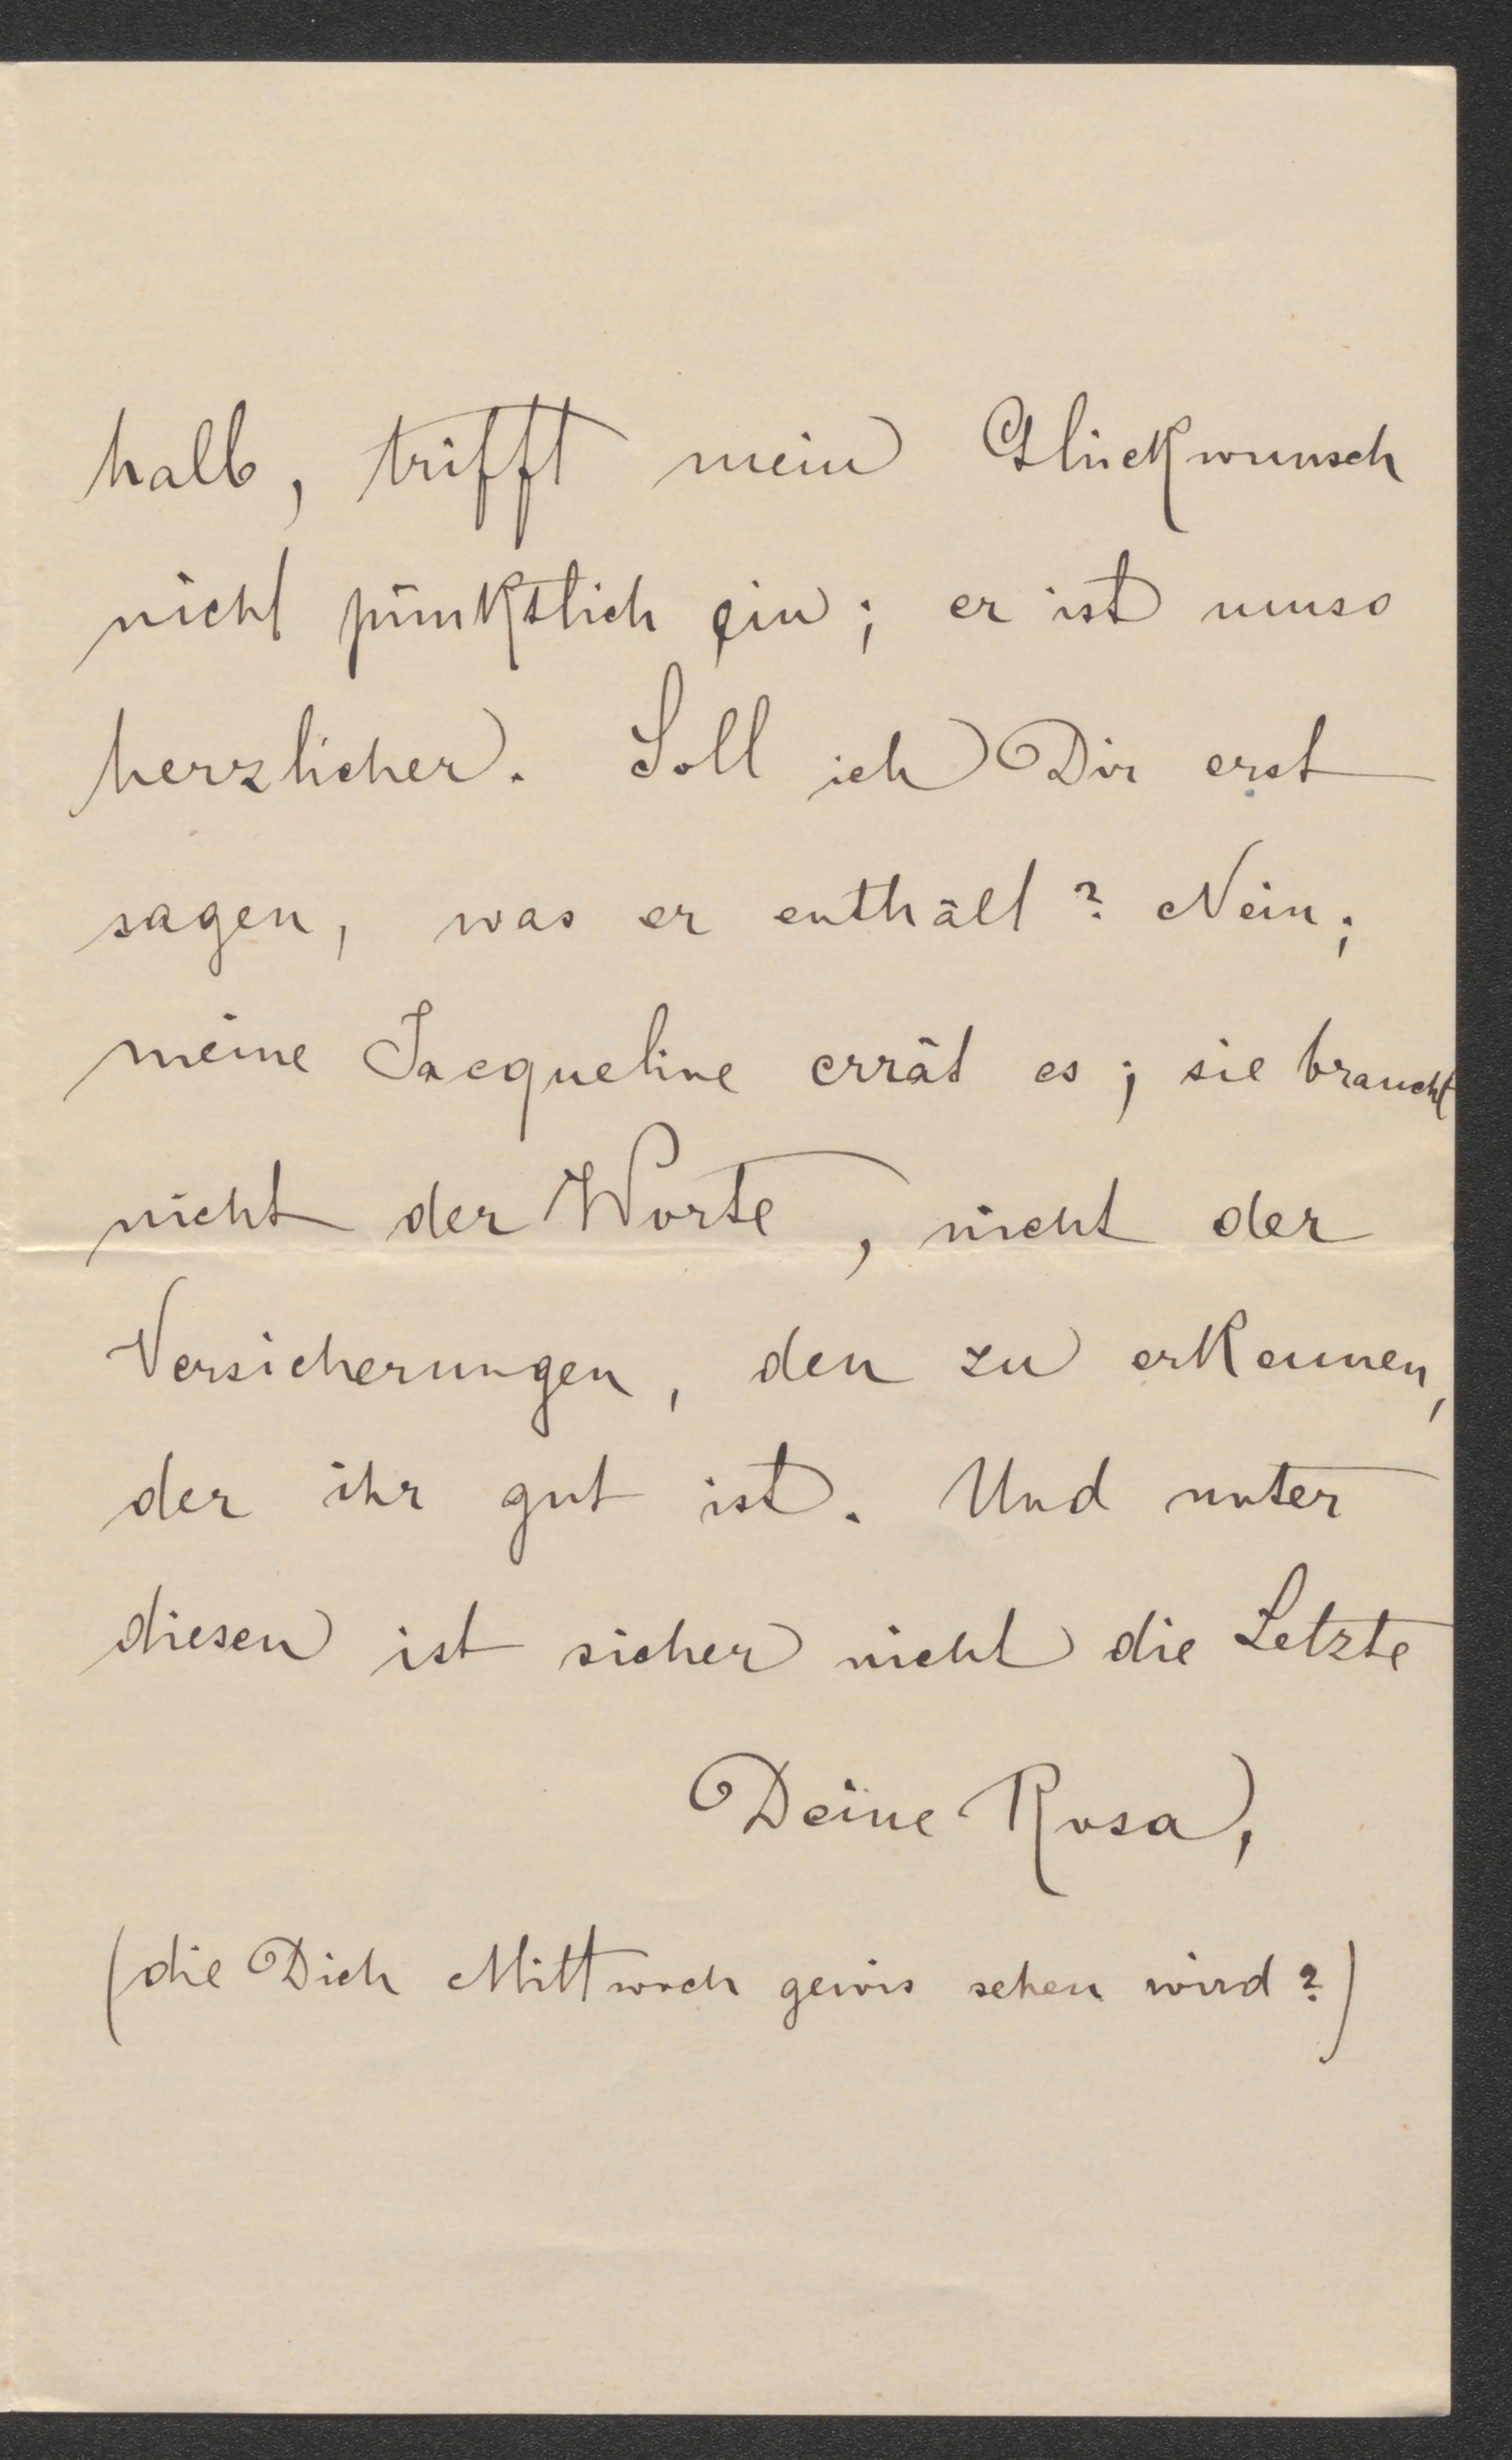 halb, trifft mein Glückwunsch
nicht pünktlich ein; er ist umso
herzlicher. Soll ich Dir erst
sagen, was er enthält? Nein;
meine Jacqueline errät es; sie braucht
nicht der Worte, nicht der
Versicherungen, den zu erkennen,
der ihr gut ist. Und unter
diesen ist sicher nicht die Letzte
Deine Rosa,
(die Dich Mittwoch gewis sehen wird?)